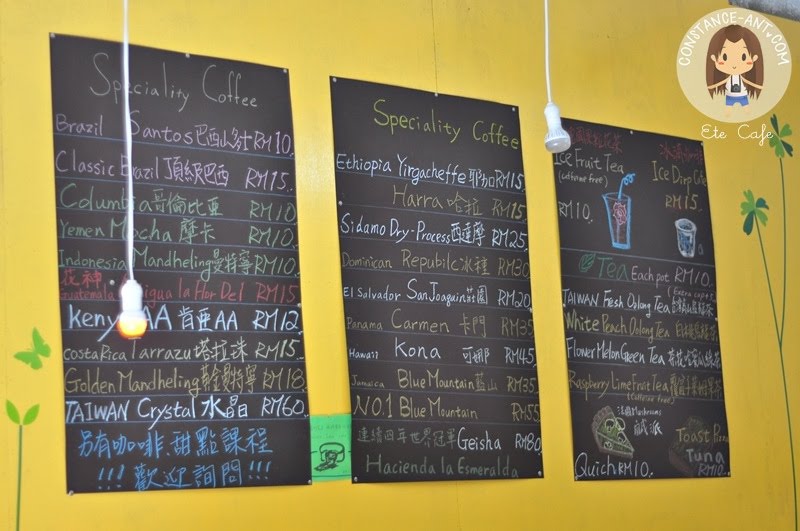 CONSTANCE-ANT.COM
Ete Cafe
Speciality Coffee
Brazil Santos 巴西 RM10
Classic Brazil 頂級巴西 RM15
Columbia 哥倫比亞 RM10
Yemen Mocha 摩卡 RM10
Indonesia Mandheling 曼特寧 RM10
花神
Guatemala Antigua la Flor Del RM15
Kenya AA 肯亞AA RM12
Costa Rica Tarrazu 塔拉珠 RM15
Golden Mandheling 黃金曼特寧 RM18
TAIWAN Crystal 水晶 RM60
另有咖啡.甜點課程
!!! 歡迎詢問!!!
Speciality Coffee
Ethiopia Yirgacheffe 耶加 RM15
Harra 哈拉 RM15
Sidamo Dry-Process 西達摩 RM25
Dominican Republic 冰種 RM30
El Salvador San Joaquin 莊園 RM20
Panama Carmen 卡門 RM35
Hawaii Kona 可娜 RM45
Jamaica Blue Mountain 藍山 RM35
NO.1 Blue Mountain RM55
連續四年世界冠軍 Geisha RM80
Hacienda la Esmeralda
Ice Fruit Tea
(caffeine free)
RM10
Ice Dirp Coffee
RM15
Tea Each pot RM10
TAIWAN Fresh Oolong Tea
White Peach Oolong Tea
Flower Melon Green Tea
Raspberry Lime Fruit Tea
(Caffeine free)
Mushrooms
鹹派
Quich RM10
Toast
Tuna
RM10